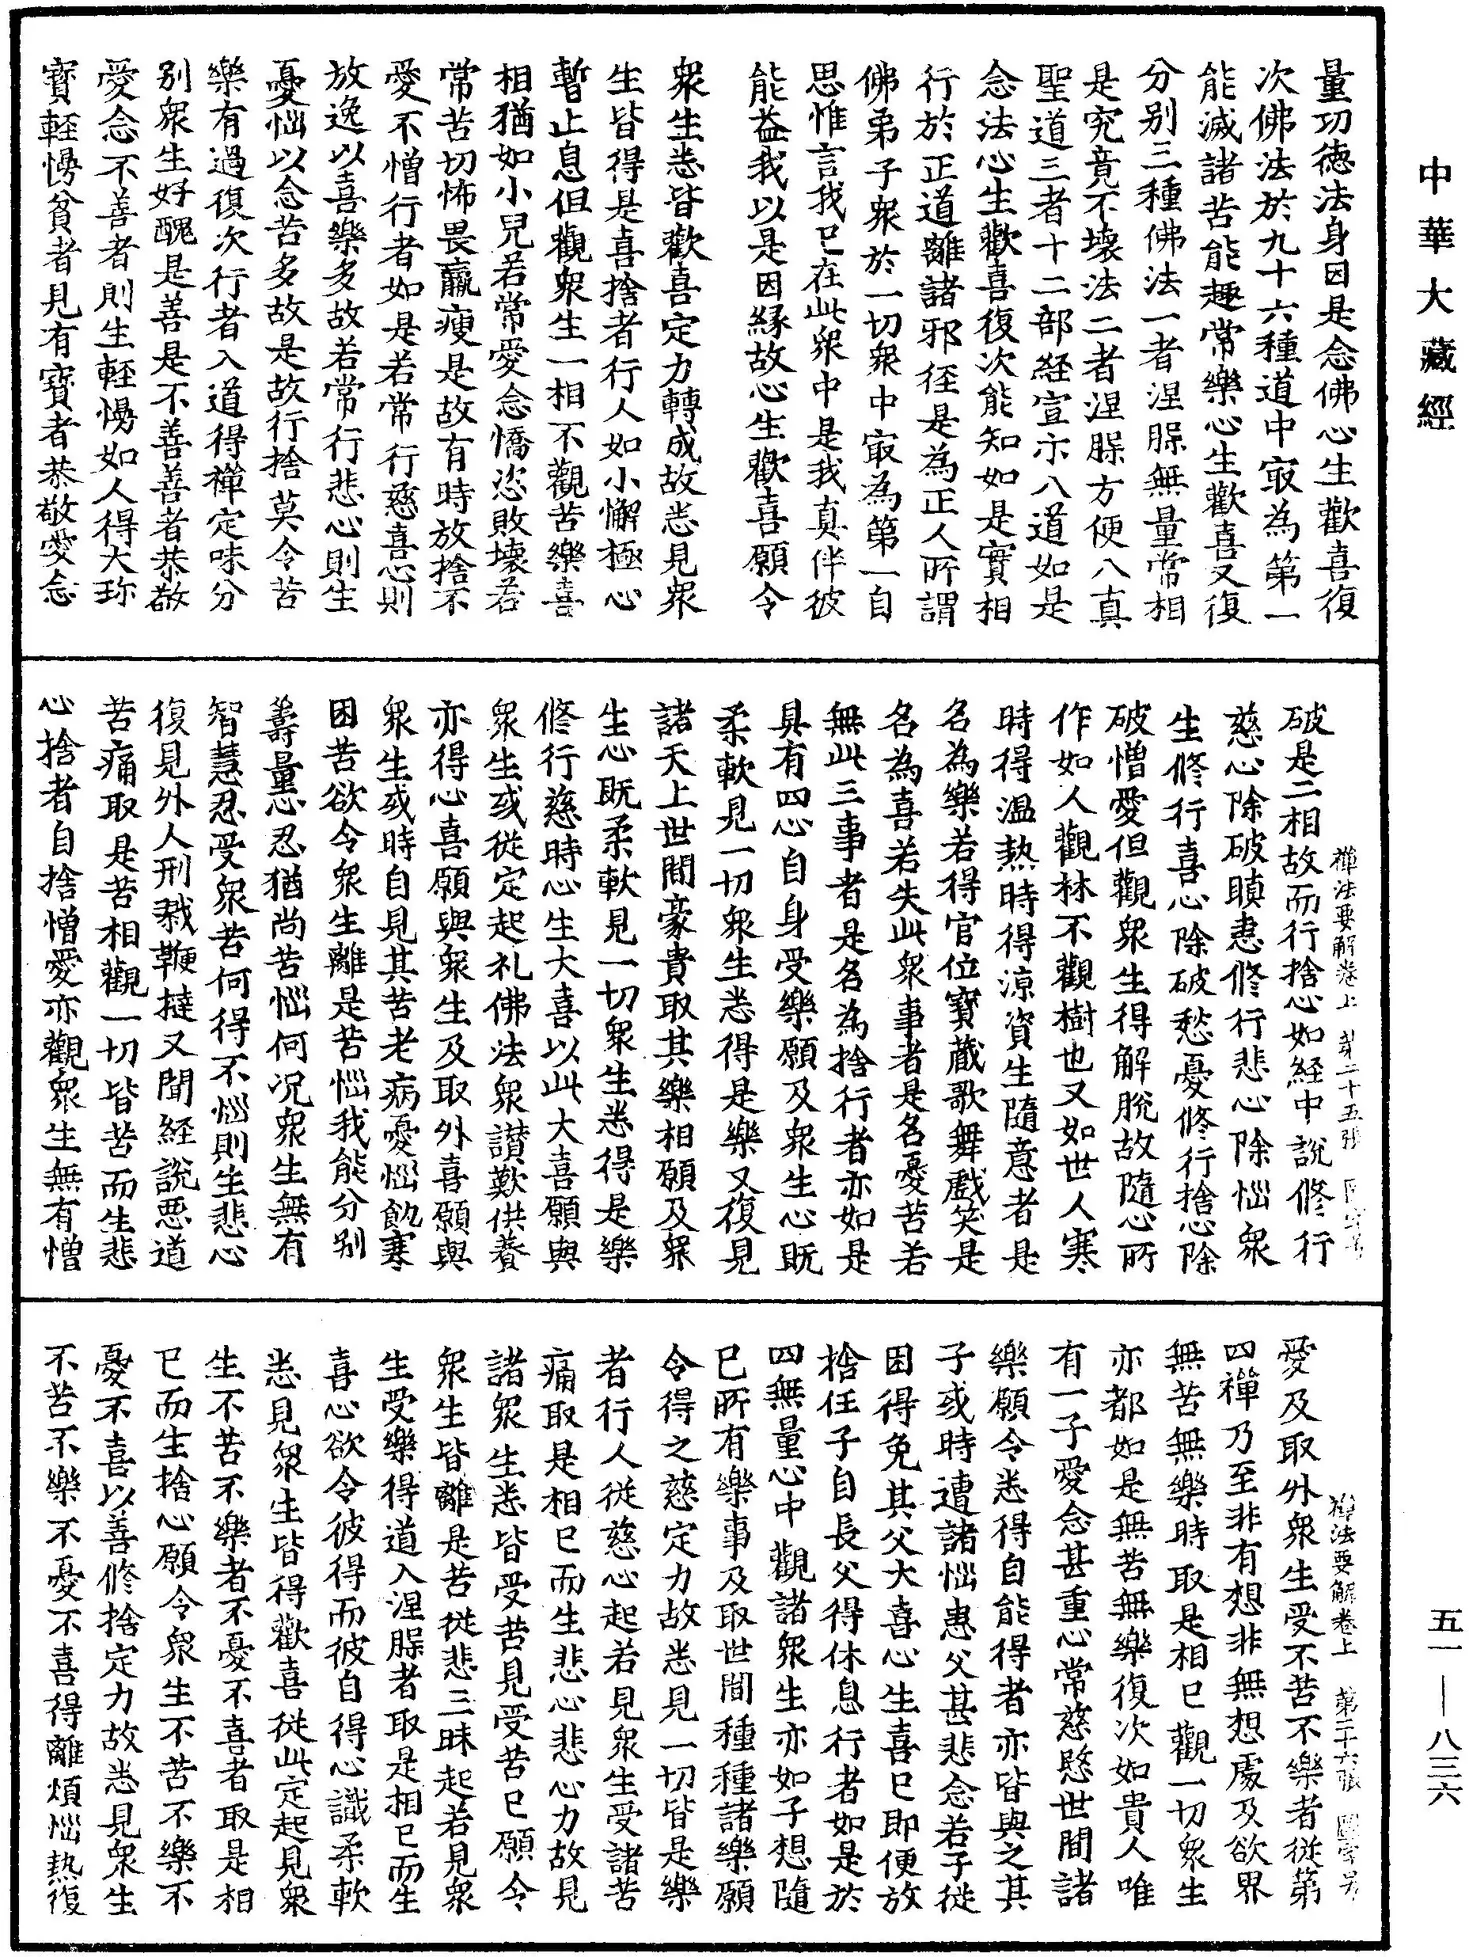 中華大藏經
量功德法身因是念佛心生歡喜復
次佛法於九十六種道中㝡為第一
能滅諸苦能趣常樂心生歡喜又復
分别三種佛法一者涅𣵀無量常相
是究竟不壞法二者涅𣵀方便八真
聖道三者十二部經宣示八道如是
念法心生歡喜復次能知如是實相
行於正道離諸邪徑是為正人所謂
佛弟子衆於一切衆中㝡為第一自
思惟言我已在此衆中是我真伴彼
能益我以是因緣故心生歡喜願令
衆生悉皆歡喜定力轉成故悉見衆
生皆得是喜捨者行人如小懈極心
暫止息但觀衆生一相不觀苦樂喜
相猶如小兒若常愛念憍恣敗壞若
常苦切怖畏羸瘦是故有時放捨不
愛不憎行者如是若常行慈喜心則
放逸以喜樂多故若常行悲心則生
憂惱以念苦多故是故行捨莫令苦
樂有過復次行者入道得禪定味分
别衆生好醜是善是不善善者恭敬
愛念不善者則生輕慢如人得大珎
寶輕慢貧者見有寶者恭敬愛念
禪法要解卷上 第二十五張
破是二相故而行捨心如經中說修行
慈心除破瞋恚修行悲心除惱衆
生修行喜心除破愁憂修行捨心除
破憎愛但觀衆生得解脫故隨心所
作如人觀林不觀樹也又如世人寒
時得溫熱時得涼資生隨意者是
名為樂若得官位寶藏歌舞戲笑是
名為喜若失此衆事者是名憂苦若
無此三事者是名為捨行者亦如是
具有四心自身受樂願及衆生心既
柔軟見一切衆生悉得是樂又復見
諸天上世間豪貴取其樂相願及衆
生心既柔軟見一切衆生悉得是樂
修行慈時心生大喜以此大喜願與
衆生或從定起礼佛法衆讃歎供養
亦得心喜願與衆生及取外喜願與
衆生或時自見其苦老病憂惱飢寒
困苦欲令衆生離是苦惱我能分别
籌量心忍猶尚苦惱何况衆生無有
智慧忍受衆苦何得不惱則生悲心
復見外人刑戮鞭撻又聞經說惡道
苦痛取是苦相觀一切皆苦而生悲
心捨者自捨憎愛亦觀衆生無有憎
禪法要解卷上 第二十六張
愛及取外衆生受不苦不樂者從第
四禪乃至非有想非無想處及欲界
無苦無樂時取是相已觀一切衆生
亦都如是無苦無樂復次如貴人唯
有一子愛念甚重心常慈愍世間諸
樂願令悉得自能得者亦皆與之其
子或時遭諸惱患父甚悲念若子從
困得免其父大喜心生喜已即便放
捨任子自長父得休息行者如是於
四無量心中觀諸衆生亦如子想隨
已所有樂事及取世間種種諸樂願
令得之慈定力故悉見一切皆是樂
者行人從慈心起若見衆生受諸苦
痛取是相已而生悲心悲心力故見
諸衆生悉皆受苦見受苦已願令
衆生皆離是苦從悲三昧起若見衆
生受樂得道入涅𣵀者取是相已而生
喜心欲令彼得而彼自得心識柔軟
悉見衆生皆得歡喜從此定起見衆
生不苦不樂者不憂不喜者取是相
已而生捨心願令衆生不苦不樂不
憂不喜以善修捨定力故悉見衆生
不苦不樂不憂不喜得離煩惱熱復
五一——八三六